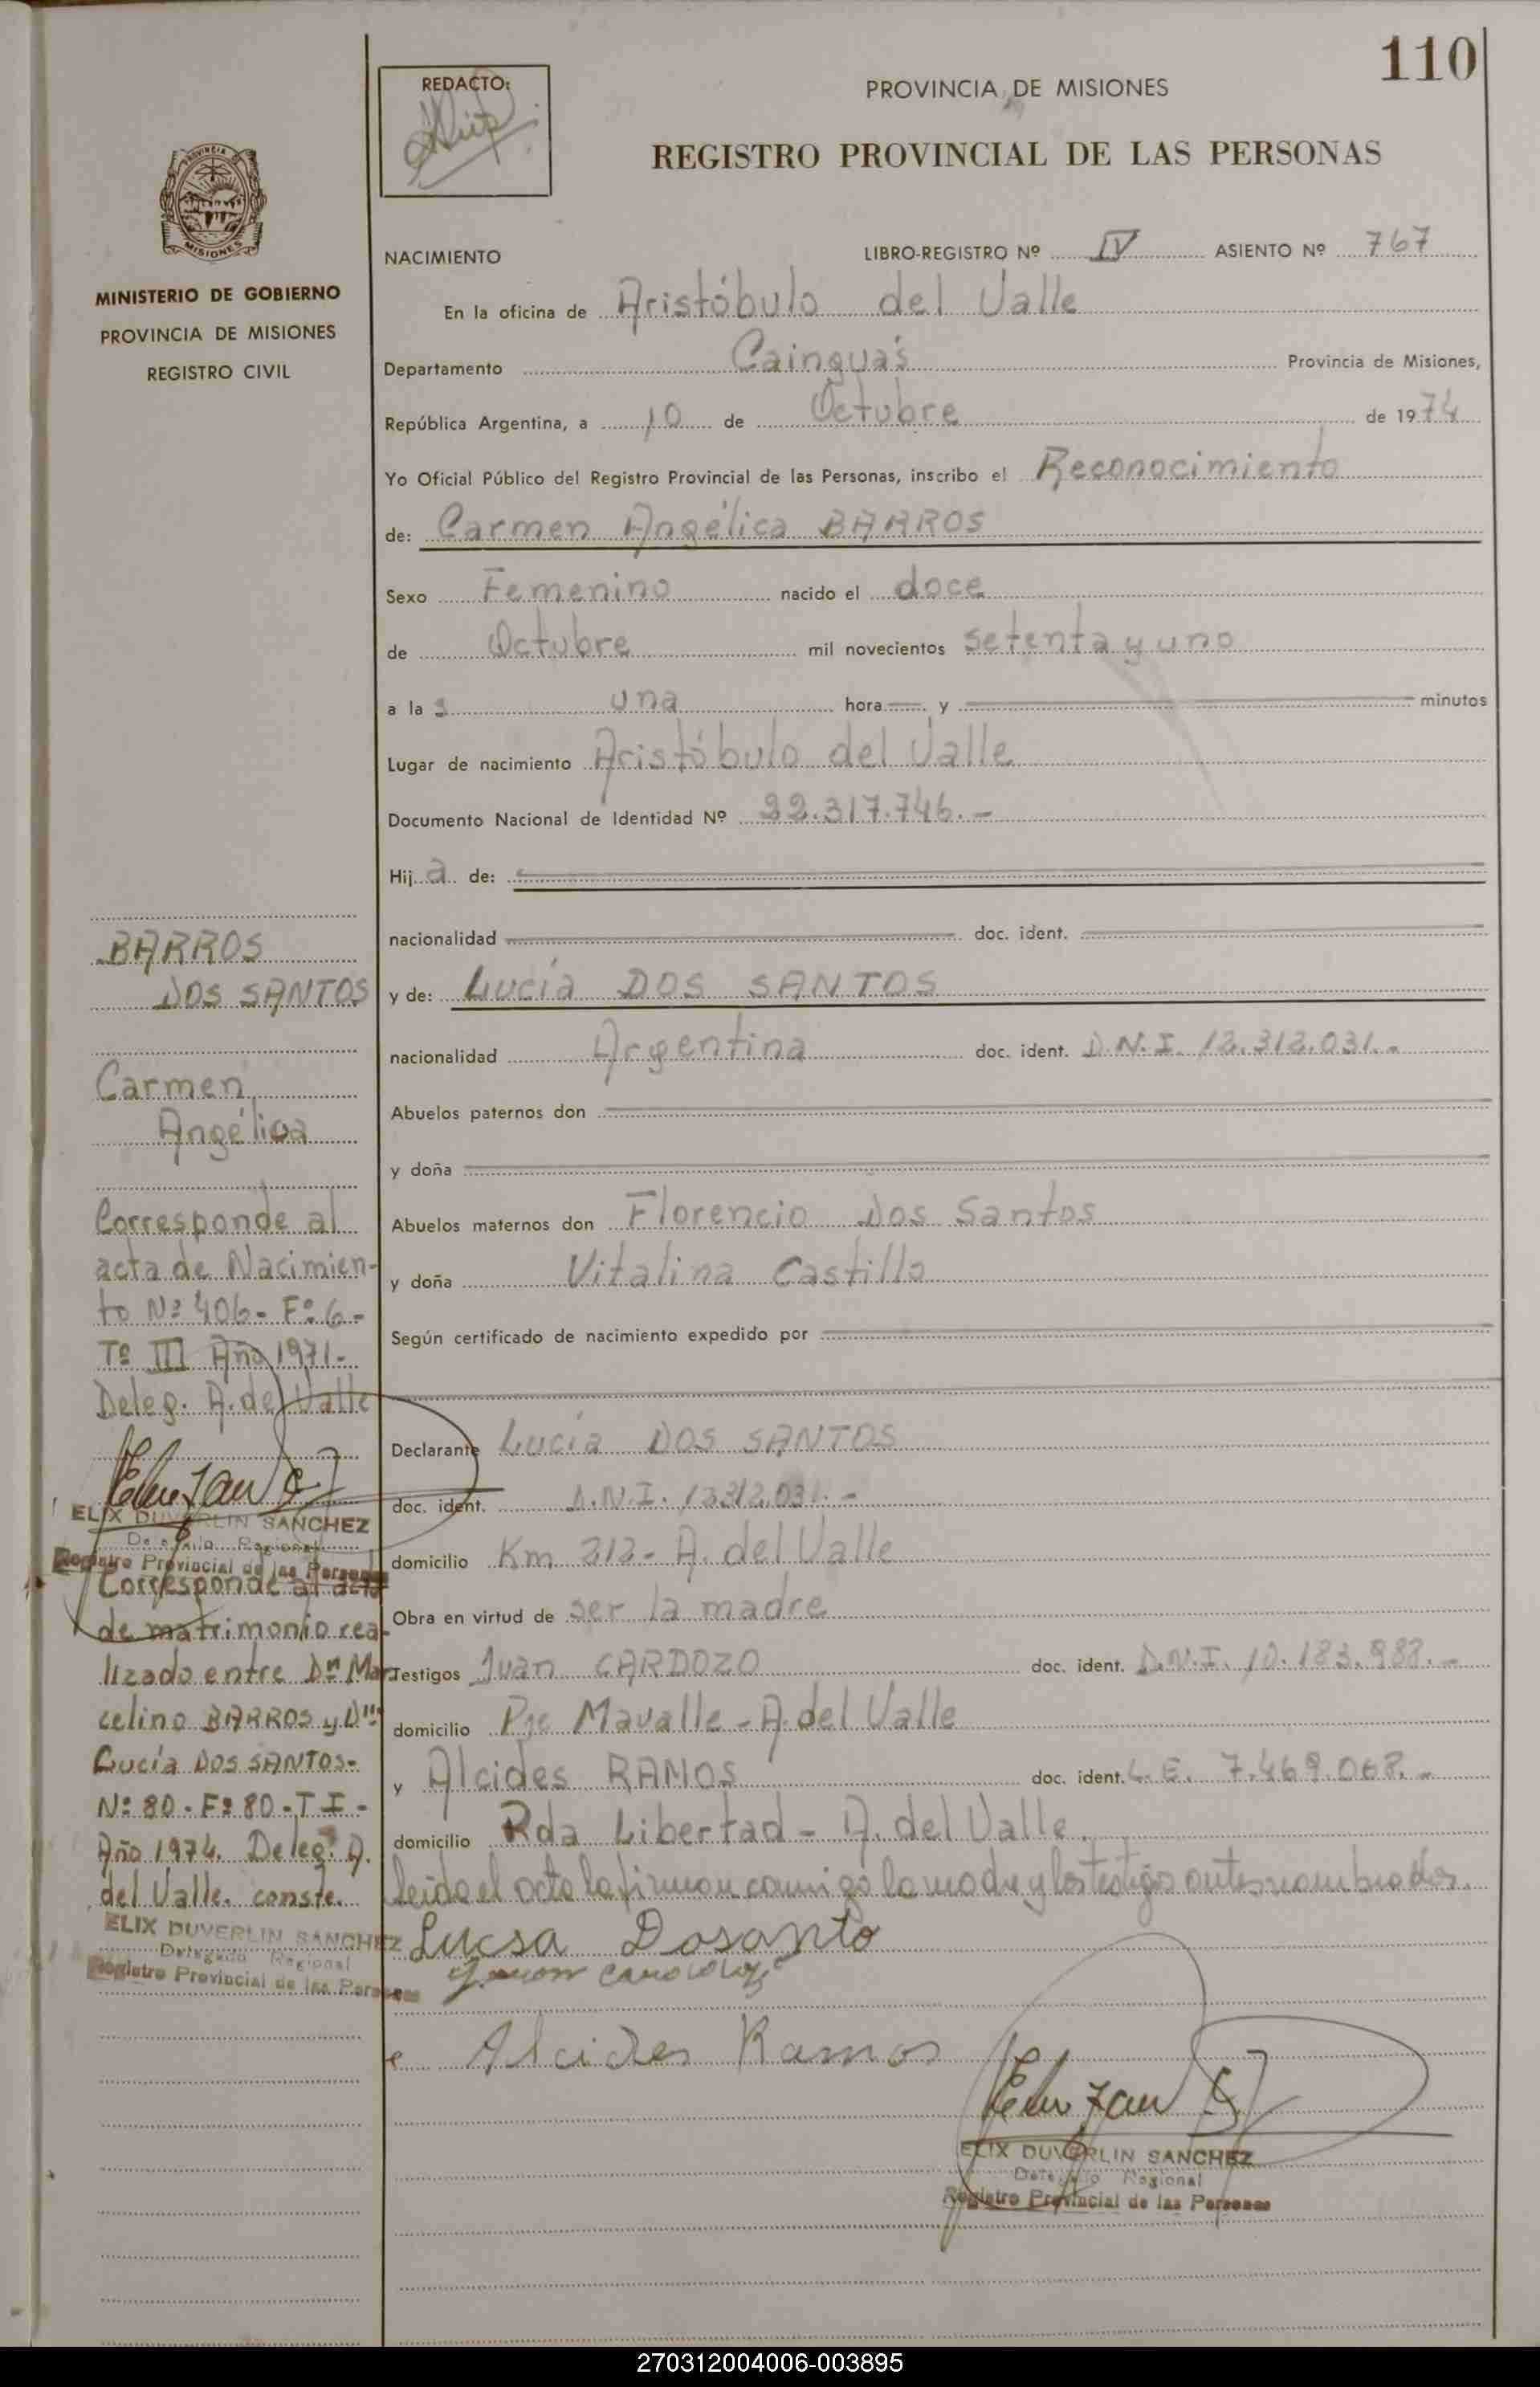 110
REDACTO:
PROVINCIA DE MISIONES
REGISTRO PROVINCIAL DE LAS PERSONAS
PROVINCIA DE
MISIONES
MINISTERIO DE GOBIERNO
PROVINCIA DE MISIONES
REGISTRO CIVIL
NACIMIENTO LIBRO-REGISTRO Nº IV ASIENTO Nº 767
En la oficina de Aristóbulo del Valle
Departamento Cainguás Provincia de Misiones,
República Argentina, a 10 de Octubre de 1974
Yo Oficial Público del Registro Provincial de las Personas, inscribo el Reconocimiento
de: Carmen Angélica BARROS
Sexo Femenino nacido el doce
de Octubre mil novecientos setenta y uno
a la s una hora y minutos
Lugar de nacimiento Aristóbulo del Valle
Documento Nacional de Identidad Nº 22.317.746.-
Hij a de:
nacionalidad doc. ident.
y de: Lucía DOS SANTOS
nacionalidad Argentina doc. ident. D.N.I. 12.312.031.-
Abuelos paternos don
y doña
Abuelos maternos don Florencio Dos Santos
y doña Vitalina Castillo
Según certificado de nacimiento expedido por
Declarante Lucía DOS SANTOS
doc. ident. D.N.I. 12.312.031.-
domicilio Km 212- A. del Valle
Obra en virtud de ser la madre
Testigos Juan CARDOZO doc. ident. D.N.I. 10.183.988.-
domicilio Pje Mavalle - A. del Valle
y Alcides RAMOS doc. ident. L.E. 7.469.068.-
domicilio Rda Libertad - A. del Valle.
leida el acta la firman conmigo la madre y los testigos antes nombrados.
Lucsa Dosanto
Alcides Ramos
ELIX DUVERLIN SANCHEZ
Delegado Regional
Registro Provincial de las Personas
BARROS
DOS SANTOS
Carmen
Angélica
Corresponde al
acta de Nacimien-
to Nº 406- Fº 6-
Tº III Año 1971-
Deleg. A. del Valle
ELIX DUVERLIN SANCHEZ
Delegado Regional
Registro Provincial de las Personas
Corresponde al acta
de matrimonio rea-
lizado entre Dn Mar
celino BARROS y Dña
Lucía DOS SANTOS-
Nº 80 - Fº 80 - T I -
Año 1974. Deleg. A.
del Valle. conste.
ELIX DUVERLIN SANCHEZ
Delegado Regional
Registro Provincial de las Personas
270312004006-003895